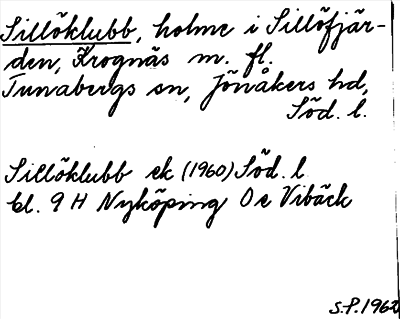 Sillöklubb, holme i Sillöfjär-
den, Krognäs m. fl.
Tunabergs sn, Jönåkers hd,
Söd. l.
Sillöklubb ek (1960) Söd. l
bl. 9 H Nyköping O e Vibäck
S.P. 1962